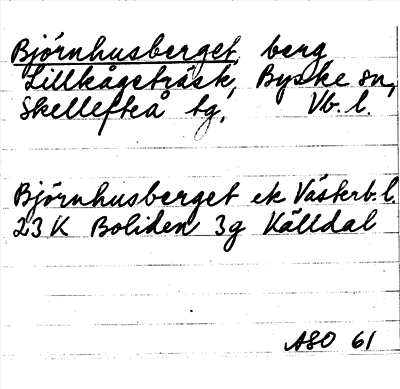 Björnhusberget, berg
Lillkågeträsk, Byske sn,
Skellefteå tg, Vb. l.
Björnhusberget ek Västerb. l.
23 K Boliden 3g Källdal
ASO 61